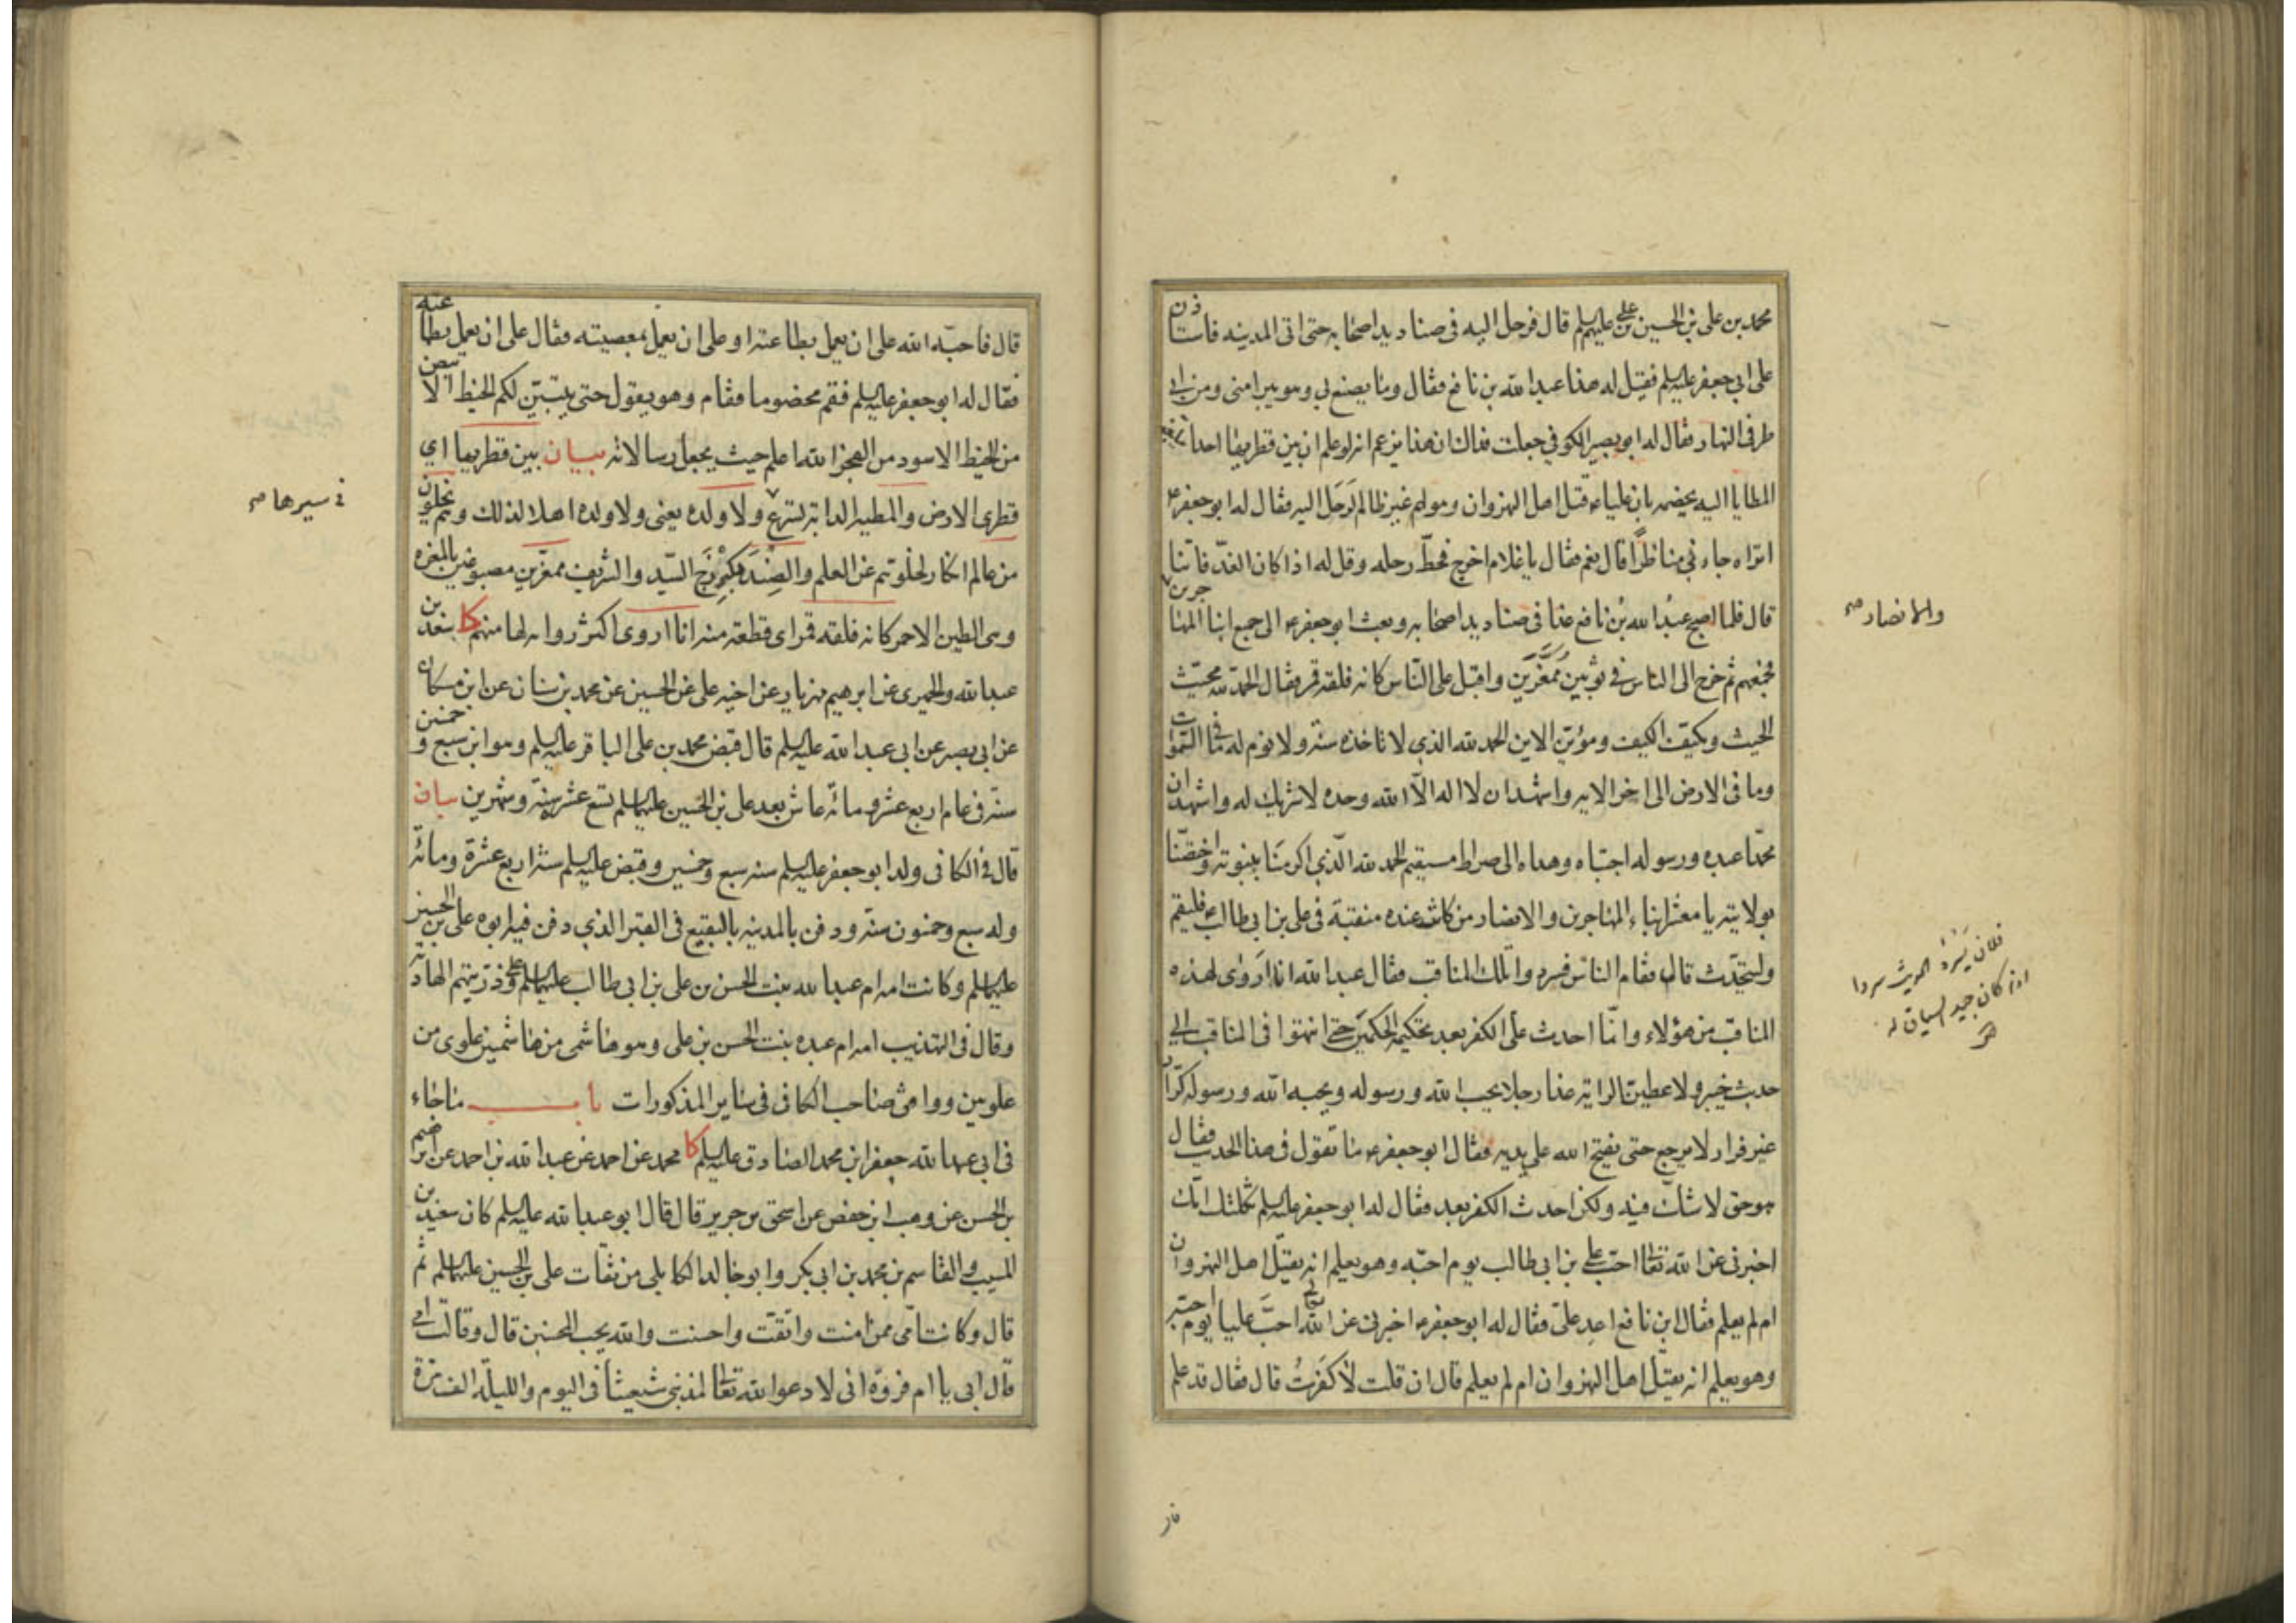 محمد بن علی بن الحسین بن علی علیهم السلم قال فرحل الیه فی صنادید اصحابه حتی اتی المدینه فاستاذن
علی ابی جعفر علیه السلم فقیل له هذا عبد الله بن نافع فقال وما یصنع بی وهو یبرا منی ومن ابی
طرفی النهار فقال له ابو بصیر الکوفی جعلت فداک ان هذا یزعم انه لو علم ان بین قطریها احدا تبلغه
المطایا الیه یخصمه بان علیا ع قتل اهل النهروان وهو لهم غیر ظالم لرحل الیه فقال له ابو جعفر ع
اتراه جاءنی مناظرا قال نعم فقال یا غلام اخرج فحط رحله وقل له اذا کان الغد فاتنا
قال فلما اصبح عبد الله بن نافع غدا فی صنادید اصحابه وبعث ابو جعفر ع الی جمیع ابنا المهاجرین
والانصار صح
فجمعهم ثم خرج الی الناس فی ثوبین ممغرین واقبل علی الناس کانه فلقة قمر فقال الحمد لله محیث
الحیث ومکیف الکیف ومؤین الاین الحمد لله الذی لا تاخذه سنة ولا نوم له ما فی السموات
وما فی الارض الی اخر الایه واشهد ان لا اله الا الله وحده لا شریک له واشهد ان
محمدا عبده ورسوله اجتباه وهداه الی صراط مستقیم الحمد لله الذی اکرمنا بنبوته واختصنا
بولایته یا معشر ابناء المهاجرین والانصار من کانت عنده منقبة فی علی بن ابی طالب ع فلیقم
ولیتحدث قال فقام الناس فسردوا تلک المناقب فقال عبد الله انا اروی لهذه
فلان یسرد الحدیث سردا
اذا کان جید السیاق له
المناقب من هؤلاء وانما احدث علی الکفر بعد تحکیمه الحکمین حتی انتهوا فی المناقب الی
حدیث خیبر ولاعطین الرایة غدا رجلا یحب الله ورسوله ویحبه الله ورسوله کرارا
غیر فرار لا یرجع حتی یفتح الله علی یدیه فقال ابو جعفر ع ما تقول فی هذا الحدیث فقال
هو حق لا شک فیه ولکن احدث الکفر بعد فقال له ابو جعفر علیه السلم ثکلتک امک
اخبرنی عن الله تعالی احب علی بن ابی طالب یوم احبه وهو یعلم انه یقتل اهل النهروان
ام لم یعلم فقال ابن نافع اعد علی فقال له ابو جعفر ع اخبرنی عن الله تعالی احب علیا یوم احبه
وهو یعلم انه یقتل اهل النهروان ام لم یعلم قال ان قلت لا کفرت قال فقال قد علم
قال فاحبه الله علی ان یعمل بطاعته او علی ان یعمل بمعصیته فقال علی ان یعمل بطاعته
فقال له ابو جعفر علیه السلم فقم مخصوما فقام وهو یقول حتی یتبین لکم الخیط الابیض
من الخیط الاسود من الفجر الله اعلم حیث یجعل رسالاته بیان بین قطریها ای
قطری الارض والمطیة الدابة تسرع ولا ولده یعنی ولا ولده اهلا لذلک وهم یخلون
فی سیرها صح
من عالم انکار لخلوهم عن العلم والصندید کبرزج السید والشریف ممغرین مصبوغین بالمغره
وهی الطین الاحمر کانه فلقة قمر ای قطعة منه انا اروی اکثر روایه لها منهم کا سعد بن
عبد الله والحمیری عن ابرهیم مهزیار عن اخیه علی عن الحسین عن محمد بن سنان عن ابن مسکان
عن ابی بصیر عن ابی عبد الله علیه السلم قال قبض محمد بن علی الباقر علیه السلم وهو ابن سبع و خمسین
سنة فی عام اربع عشره ومائة عاش بعد علی بن الحسین علیهما السلم تسع عشر سنة وشهرین بیان
قال فی الکافی ولد ابو جعفر علیه السلم سنه سبع وخمسین وقبض علیه السلم سنة اربع عشرة ومائة
وله سبع وخمسون سنة ودفن بالمدینه بالبقیع فی القبر الذی دفن فیه ابوه علی بن الحسین
علیهما السلم وکانت امه ام عبد الله بنت الحسن بن علی بن ابی طالب علیهم السلم وعلی ذریتهم الهادیة
وقال فی التهذیب امه ام عبده بنت الحسن بن علی وهو هاشمی من هاشمین علوی من
علویین ووافق صاحب الکافی فی سایر المذکورات باب ما جاء
فی ابی عبد الله جعفر ابن محمد الصادق علیه السلم کا محمد عن احمد عن عبد الله بن احمد عن ابراهیم
بن الحسن عن وهب ابن حفص عن اسحق بن جریر قال قال ابو عبد الله علیه السلم کان سعید بن
المسیب والقاسم بن محمد بن ابی بکر وابو خالد الکابلی من ثقات علی بن الحسین علیهما السلم ثم
قال وکانت امی ممن امنت واتقت واحسنت والله یحب المحسنین قال وقالت امی
قال ابی یا ام فروة انی لادعوا الله تعالی لمذنبی شیعتنا فی الیوم واللیلة الف مرة